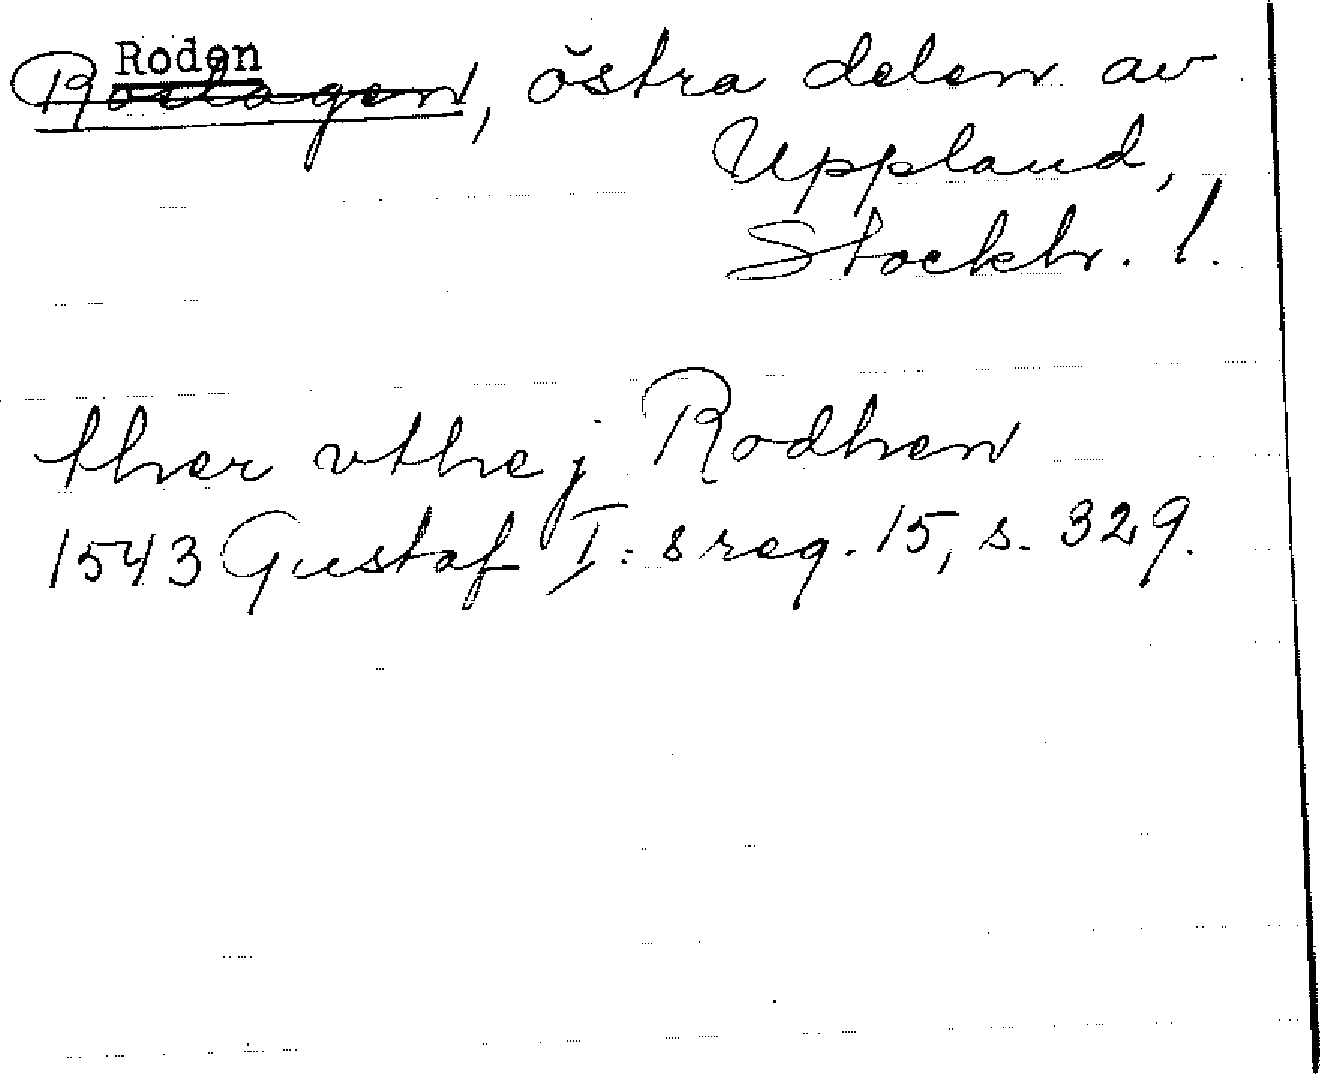 Roden
Roslagen, östra delen av
Uppland,
Stockh. l.
ther vthe j Rodhen
1543 Gustaf I:s reg. 15, s. 329.